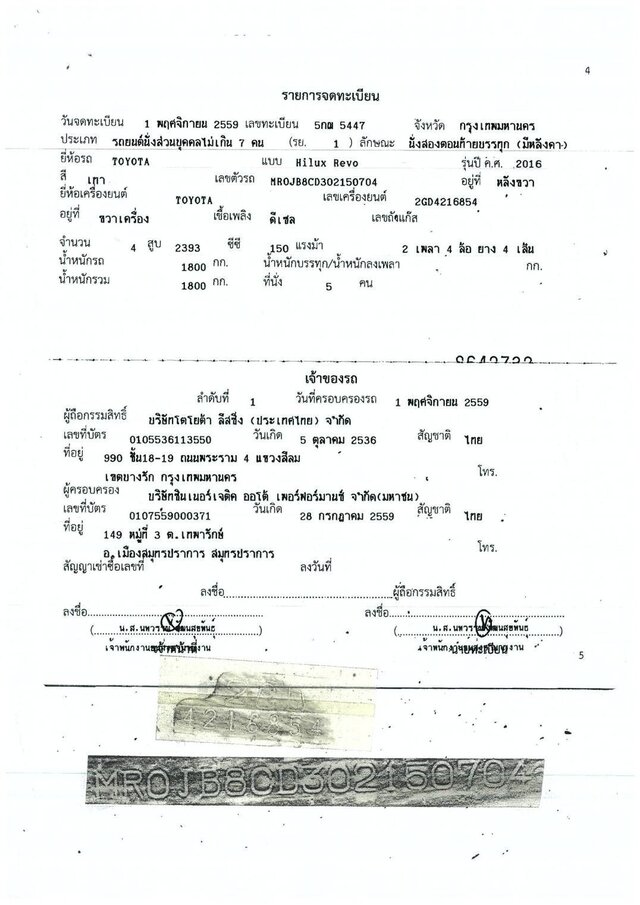 4
รายการจดทะเบียน
วันจดทะเบียน 1 พฤศจิกายน 2559 เลขทะเบียน 5กฌ 5447 จังหวัด กรุงเทพมหานคร
ประเภท รถยนต์นั่งส่วนบุคคลไม่เกิน 7 คน (รย. 1 ) ลักษณะ นั่งสองตอนท้ายบรรทุก (มีหลังคา)
ยี่ห้อรถ TOYOTA แบบ Hilux Revo รุ่นปี ค.ศ. 2016
สี เทา เลขตัวรถ MR0JB8CD302150704 อยู่ที่ หลังขวา
ยี่ห้อเครื่องยนต์ TOYOTA เลขเครื่องยนต์ 2GD4216854
อยู่ที่ ขวาเครื่อง เชื้อเพลิง ดีเซล เลขถังแก๊ส
จำนวน 4 สูบ 2393 ซีซี 150 แรงม้า 2 เพลา 4 ล้อ ยาง 4 เส้น
น้ำหนักรถ 1800 กก. น้ำหนักบรรทุก/น้ำหนักลงเพลา กก.
น้ำหนักรวม 1800 กก. ที่นั่ง 5 คน
เจ้าของรถ
ลำดับที่ 1 วันที่ครอบครองรถ 1 พฤศจิกายน 2559
ผู้ถือกรรมสิทธิ์ บริษัทโตโยต้า ลีสซิ่ง (ประเทศไทย) จำกัด
เลขที่บัตร 0105536113550 วันเกิด 5 ตุลาคม 2536 สัญชาติ ไทย
ที่อยู่ 990 ชั้น18-19 ถนนพระราม 4 แขวงสีลม
เขตบางรัก กรุงเทพมหานคร โทร.
ผู้ครอบครอง บริษัทซินเนอร์เจติค ออโต้ เพอร์ฟอร์มานซ์ จำกัด(มหาชน)
เลขที่บัตร 0107559000371 วันเกิด 28 กรกฎาคม 2559 สัญชาติ ไทย
ที่อยู่ 149 หมู่ที่ 3 ต.เทพารักษ์
อ.เมืองสมุทรปราการ สมุทรปราการ โทร.
สัญญาเช่าซื้อเลขที่ ลงวันที่
ลงชื่อ ผู้ถือกรรมสิทธิ์
ลงชื่อ ลงชื่อ
5
4216854
MR0JB8CD302150704